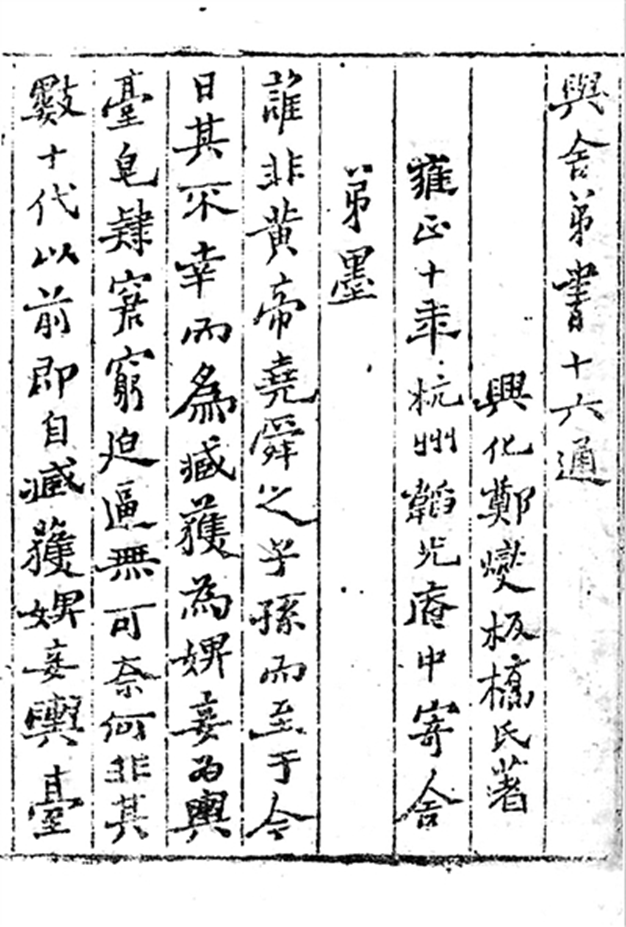 與舍弟書十六通
興化鄭燮板橋氏著
雍正十年杭州韜光庵中寄舍
弟墨
誰非黃帝堯舜之子孫而至于今
日其不幸而為臧獲為婢妾為輿
臺皂隸窘窮迫逼無可奈何非其
數十代以前即自臧獲婢妾輿臺